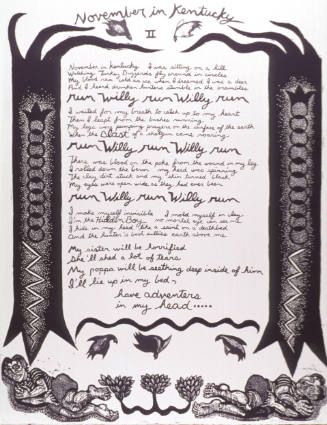 November in Kentucky
II
November in Kentucky I was sitting on a hill
Watching Turkey Buzzards fly around in circles
My blood ran cold as ice when I dreamed I was a deer
And I heard drunken hunters stumble in the brambles
run Willy run Willy run
I waited for my breath to catch up to my heart
Then I leapt from the bushes running
My legs were pumping prayers on the surface of the earth
When the Blast of a shotgun came roaring
run Willy run Willy run
There was blood on the poke from the wound in my leg
I rolled down the bank my head was spinning
The clay dirt stuck and my skin turned black
My eyes were open wide as they had ever been
run Willy run Willy run
I make myself invisible I mold myself in clay
I'm the Hidden Boy no mortal eye can see
I hide in my head like a saint on a deathbed
And the hunter is back mutters earth above me
My sister will be horrified
She'll shed a lot of tears
My poppa will be seething deep inside of him
I'll lie up in my bed
have adventers
in my head.....